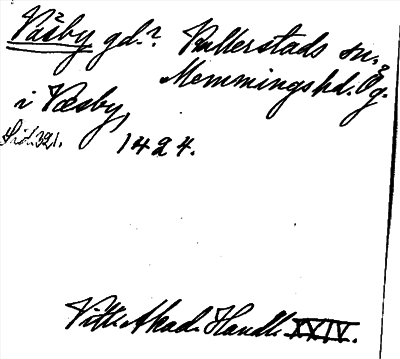 Väsby gd.? Kullerstads sn.,
Memmingshd. Ög.
i Væsby,
Sid. 321.
1424.
Vitt. Akad. Handl. XXIV.